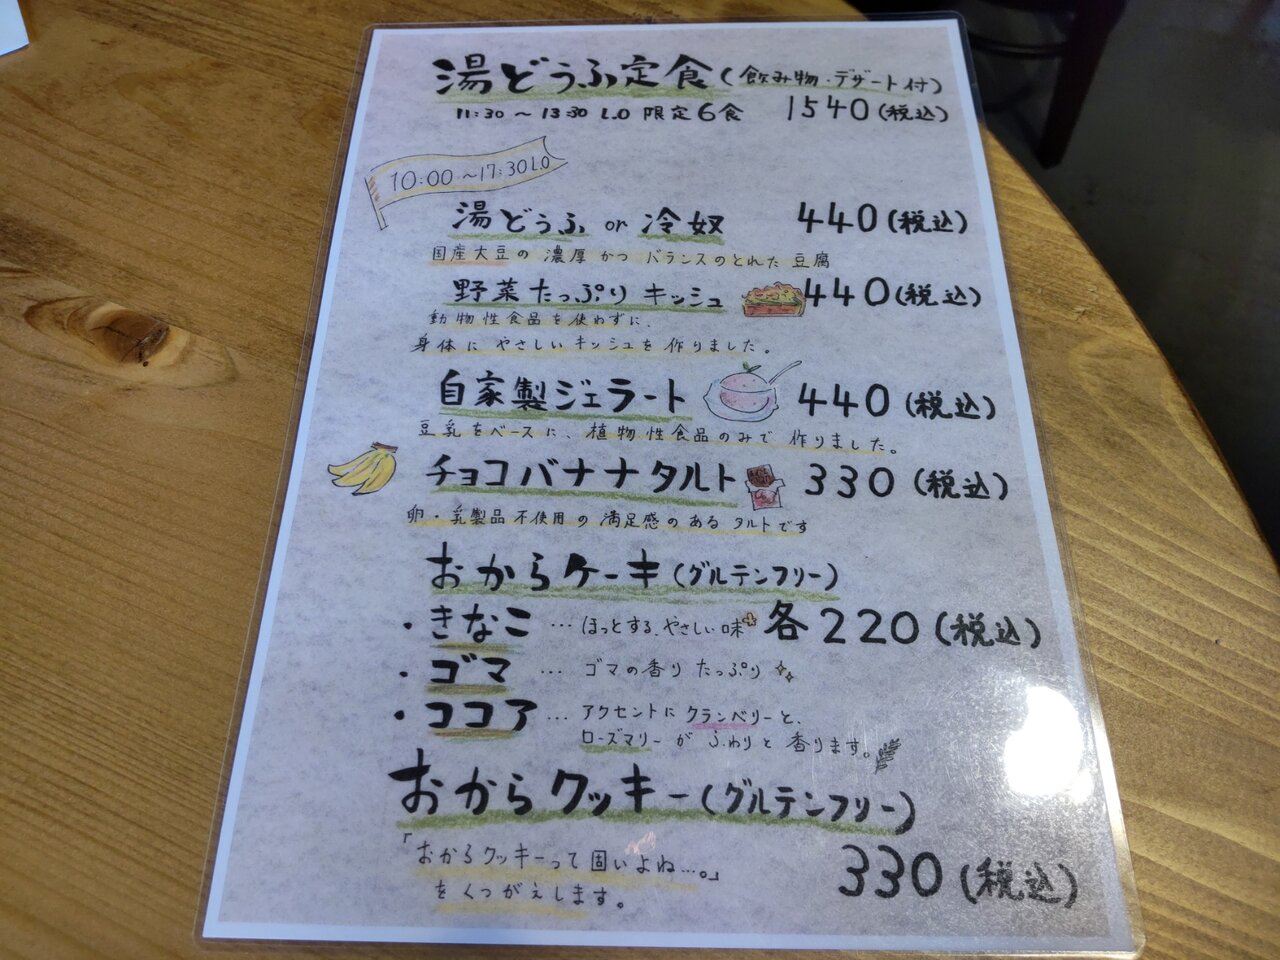 湯どうふ定食(飲み物・デザート付)
11:30～13:30 L.O 限定6食 1540(税込)
10:00～17:30L.O
湯どうふ or 冷奴 440(税込)
国産大豆の濃厚かつバランスのとれた豆腐
野菜たっぷりキッシュ 440(税込)
動物性食品を使わずに、
身体にやさしいキッシュを作りました。
自家製ジェラート 440(税込)
豆乳をベースに、植物性食品のみで作りました。
チョコバナナタルト 330(税込)
卵・乳製品不使用の満足感のあるタルトです
おからケーキ(グルテンフリー)
・きなこ…ほっとする、やさしい味 各220(税込)
・ゴマ…ゴマの香りたっぷり
・ココア…アクセントにクランベリーと、
ローズマリーがふわりと香ります。
おからクッキー(グルテンフリー)
「おからクッキーって固いよね…。」
をくつがえします。 330(税込)